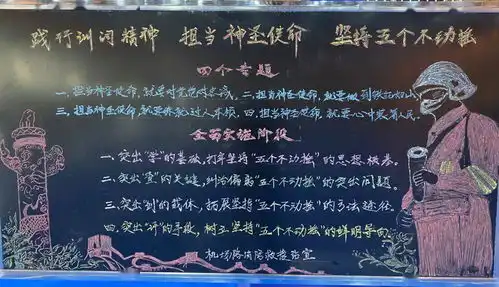 践行训词精神 担当神圣使命 坚持五个不动摇
四个专题
一、担当神圣使命,就要对党绝对忠诚。二、担当神圣使命,就要做到纪律如山。
三、担当神圣使命,就要练就过人本领。四、担当神圣使命,就要心中装着人民。
全面实施阶段
一、突出"学"的基础,打牢坚持"五个不动摇"的思想根基。
二、突出"查"的关键,纠治偏离"五个不动摇"的突出问题。
三、突出到的载体,拓展坚持"五个不动摇"的方法途径。
四、突出"评"的手段,树立坚持"五个不动摇"的鲜明导向。
机场路消防救援站宣